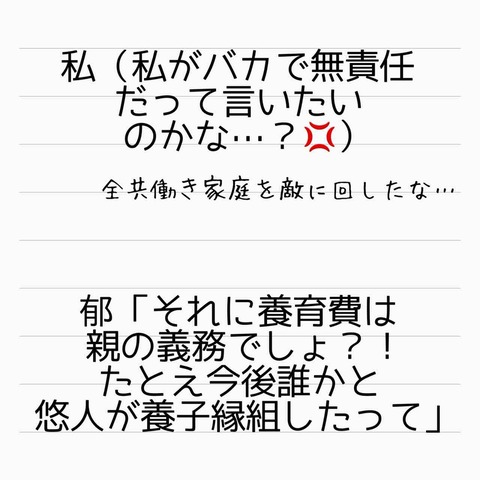 私（私がバカで無責任
だって言いたい
のかな…？💢）
全共働き家庭を敵に回したな…
郁「それに養育費は
親の義務でしょ？！
たとえ今後誰かと
悠人が養子縁組したって」